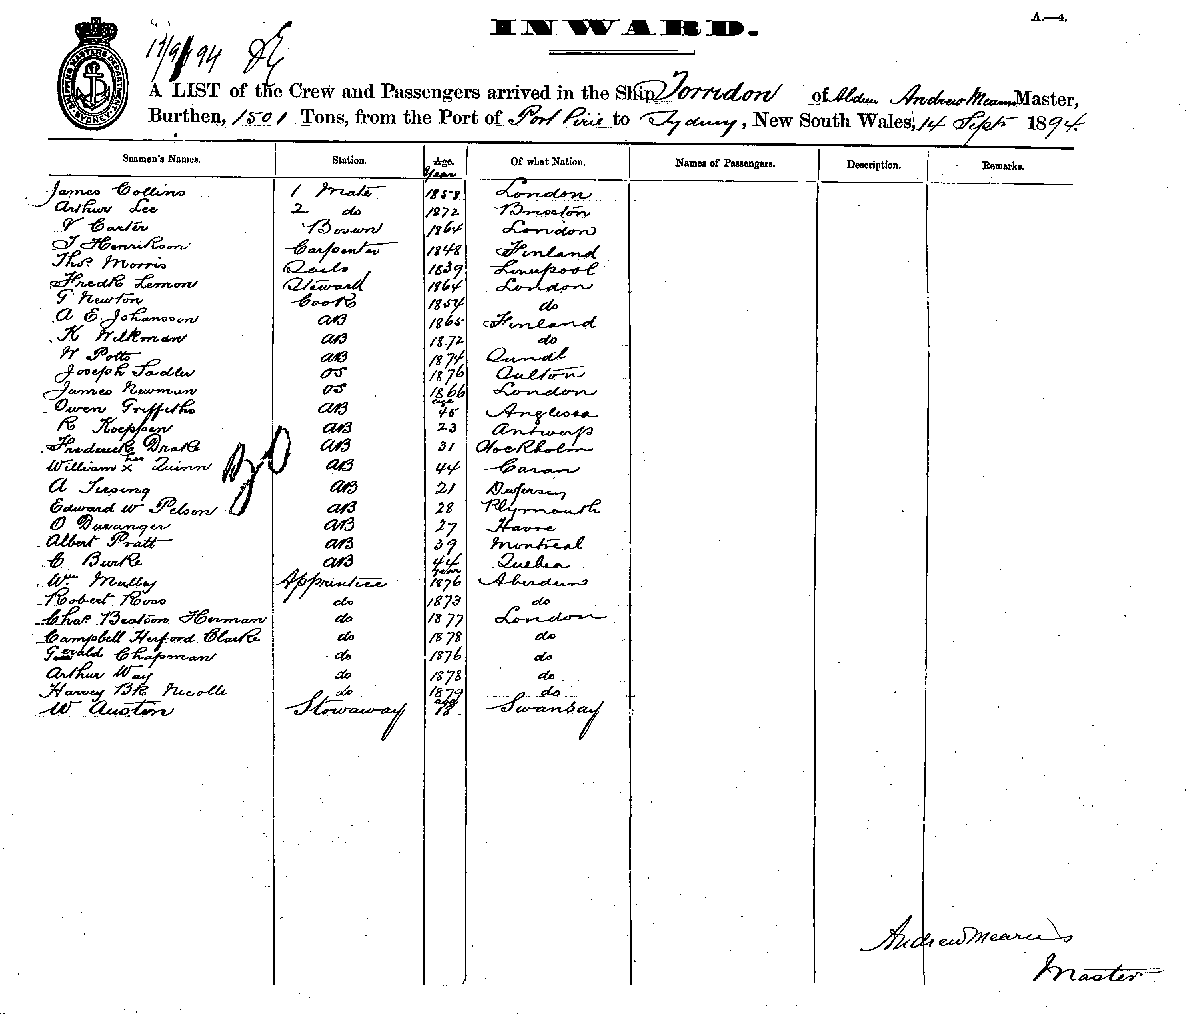 A.—4.
INWARD.
17/9/94
A LIST of the Crew and Passengers arrived in the Ship Torridon of Abdeen Andrew Mearns Master,
Burthen, 1501 Tons, from the Port of Port Pirie to Sydney, New South Wales, 14 Sept 1894
Seamen's Names. Station. Age. Of what Nation. Names of Passengers. Description. Remarks.
Year
James Collins 1 Mate 1858 London
Arthur Lee 2 do 1872 Brixton
V Carter Bosun 1864 London
J Henrikson Carpenter 1848 Finland
Thos Morris Sails 1839 Liverpool
Fredk Lemon Steward 1864 London
G Newton Cook 1854 do
A E Johansson AB 1865 Finland
K Wilkman AB 1872 do
W Potts AB 1874
Joseph Sadler OS 1876
James Newman OS 1866 London
age
Owen Griffiths AB 45
R Koeppen AB 23 Antwerp
Frederick Drake AB 31 Stockholm
William X Quinn AB 44
A AB 21
Edward W Pelson AB 28 Plymouth
O Duranger AB 27 Havre
Albert Pratt AB 39 Montreal
C Burke AB 44 Quebec
year
Wm Mulley Apprentice 1876 Aberdeen
Robert Ross do 1873 do
Chas Beatson Herman do 1877 London
Campbell Herford Clarke do 1878 do
Gerald Chapman do 1876 do
Arthur Way do 1878 do
Harvey Bk Nicolle do 1879 do
age
W Austen Stowaway 18 Swansay
Andrew Mearns
Master